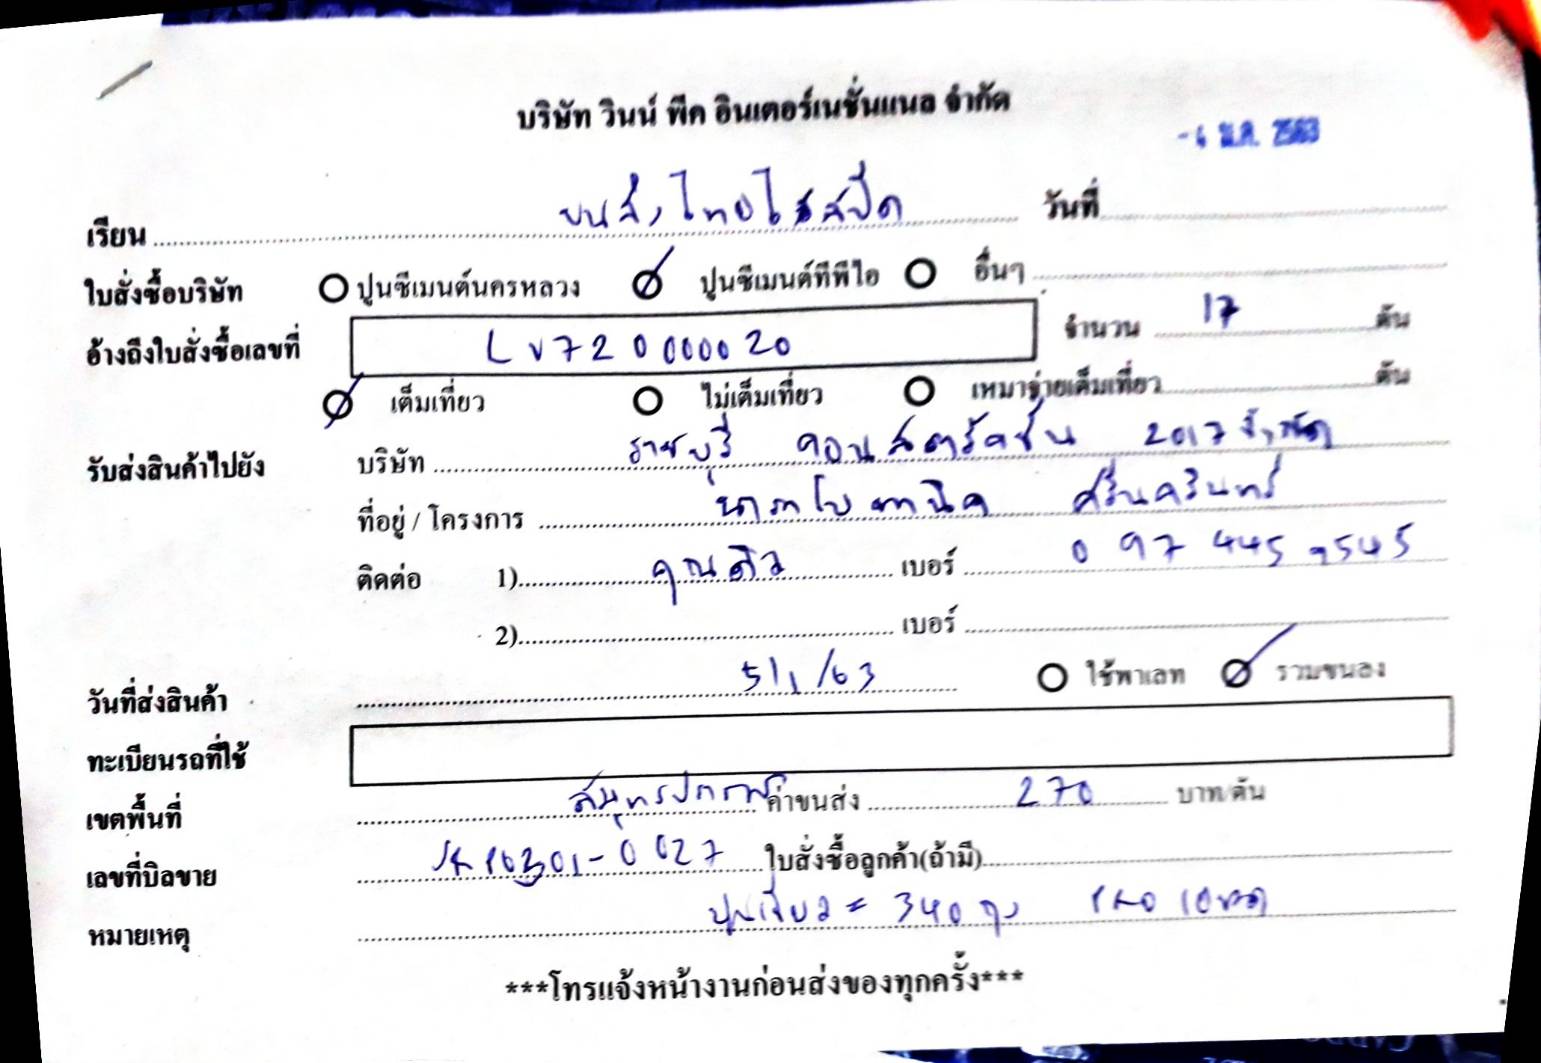 บริษัท วินน์ พีค อินเตอร์เนชั่นแนล จำกัด
ม.ค. 2563
เรียน ขนส่งไทยไฮสปีด วันที่
ใบสั่งซื้อบริษัท ปูนซีเมนต์นครหลวง ปูนซีเมนต์ทีพีไอ อื่นๆ
อ้างถึงใบสั่งซื้อเลขที่ LV720000020 จำนวน 17 ตัน
เต็มเที่ยว ไม่เต็มเที่ยว เหมาจ่ายเต็มเที่ยว ตัน
รับส่งสินค้าไปยัง บริษัท ราชบุรี คอนสตรัคชั่น 2017 จำกัด
ที่อยู่ / โครงการ ศรีนครินทร์
ติดต่อ 1) คุณคิว เบอร์ 097 445 9545
2) เบอร์
วันที่ส่งสินค้า 5/1/63 ใช้พาเลท รวมขนลง
ทะเบียนรถที่ใช้
เขตพื้นที่ สมุทรปราการ ค่าขนส่ง 270 บาท/ตัน
เลขที่บิลขาย ใบสั่งซื้อลูกค้า(ถ้ามี)
หมายเหตุ ปูนเขียว = 340 ถุง
***โทรแจ้งหน้างานก่อนส่งของทุกครั้ง***